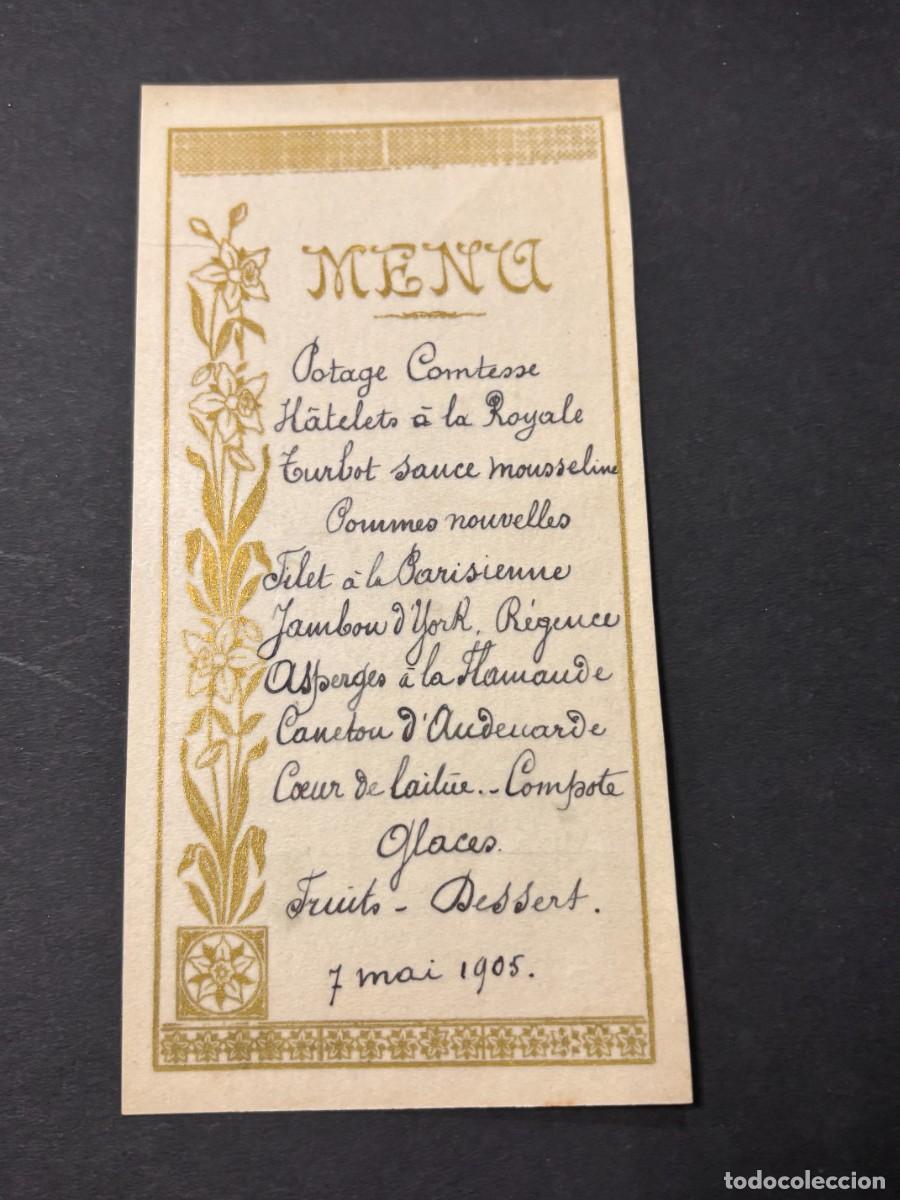 MENU
Potage Comtesse
Hâtelets à la Royale
Turbot sauce mousseline
Pommes nouvelles
Filet à la Parisienne
Jambon d'York, Régence
Asperges à la Flamande
Caneton d'Audenarde
Cœur de laitüe.. Compote
Glaces.
Fruits - Dessert.
7 mai 1905.
todocoleccion